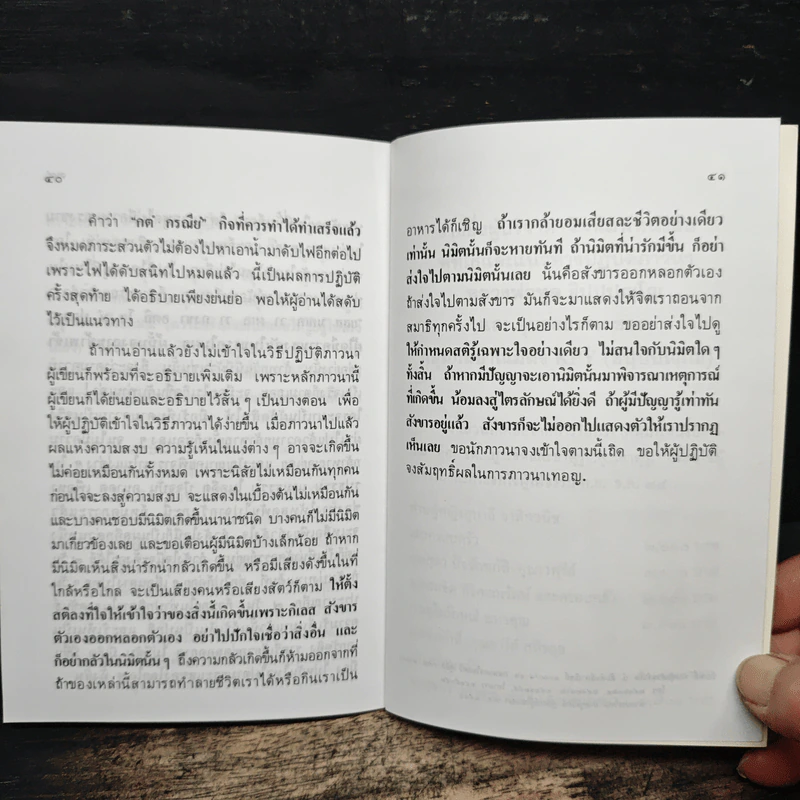 ๔๐
คำว่า "กตํ กรณียํ" กิจที่ควรทำได้ทำเสร็จแล้ว
จึงหมดภาระส่วนตัวไม่ต้องไปหาเอาน้ำมาดับไฟอีกต่อไป
เพราะไฟได้ดับสนิทไปหมดแล้ว นี้เป็นผลการปฏิบัติ
ครั้งสุดท้าย ได้อธิบายเพียงย่นย่อ พอให้ผู้อ่านได้สดับ
ไว้เป็นแนวทาง
ถ้าท่านอ่านแล้วยังไม่เข้าใจในวิธีปฏิบัติภาวนา
ผู้เขียนก็พร้อมที่จะอธิบายเพิ่มเติม เพราะหลักภาวนานี้
ผู้เขียนก็ได้ย่นย่อและอธิบายไว้สั้น ๆ เป็นบางตอน เพื่อ
ให้ผู้ปฏิบัติเข้าใจในวิธีภาวนาได้ง่ายขึ้น เมื่อภาวนาไปแล้ว
ผลแห่งความสงบ ความรู้เห็นในแง่ต่าง ๆ อาจจะเกิดขึ้น
ไม่ค่อยเหมือนกันทั้งหมด เพราะนิสัยไม่เหมือนกันทุกคน
ก่อนใจจะลงสู่ความสงบ จะแสดงในเบื้องต้นไม่เหมือนกัน
และบางคนชอบมีนิมิตเกิดขึ้นนานาชนิด บางคนก็ไม่มีนิมิต
มาเกี่ยวข้องเลย และขอเตือนผู้มีนิมิตบ้างเล็กน้อย ถ้าหาก
มีนิมิตเห็นสิ่งน่ารักน่ากลัวเกิดขึ้น หรือมีเสียงดังขึ้นในที่
ใกล้หรือไกล จะเป็นเสียงคนหรือเสียงสัตว์ก็ตาม ให้ตั้ง
สติลงที่ใจให้เข้าใจว่าของสิ่งนี้เกิดขึ้นเพราะกิเลส สังขาร
ตัวเองออกหลอกตัวเอง อย่าไปปักใจเชื่อว่าสิ่งอื่น และ
ก็อย่ากลัวในนิมิตนั้น ๆ ถึงความกลัวเกิดขึ้นก็ห้ามออกจากที่
ถ้าของเหล่านี้สามารถทำลายชีวิตเราได้หรือกินเราเป็น
๔๑
อาหารได้ก็เชิญ ถ้าเรากล้ายอมเสียสละชีวิตอย่างเดียว
เท่านั้น นิมิตนั้นก็จะหายทันที ถ้านิมิตที่น่ารักมีขึ้น ก็อย่า
ส่งใจไปตามนิมิตนั้นเลย นั้นคือสังขารออกหลอกตัวเอง
ถ้าส่งใจไปตามสังขาร มันก็จะมาแสดงให้จิตเราถอนจาก
สมาธิทุกครั้งไป จะเป็นอย่างไรก็ตาม ขออย่าส่งใจไปดู
ให้กำหนดสติรู้เฉพาะใจอย่างเดียว ไม่สนใจกับนิมิตใด ๆ
ทั้งสิ้น ถ้าหากมีปัญญาจะเอานิมิตนั้นมาพิจารณาเหตุการณ์
ที่เกิดขึ้น น้อมลงสู่ไตรลักษณ์ได้ยิ่งดี ถ้าผู้มีปัญญารู้เท่าทัน
สังขารอยู่แล้ว สังขารก็จะไม่ออกไปแสดงตัวให้เราปรากฏ
เห็นเลย ขอนักภาวนาจงเข้าใจตามนี้เถิด ขอให้ผู้ปฏิบัติ
จงสัมฤทธิ์ผลในการภาวนาเทอญ.